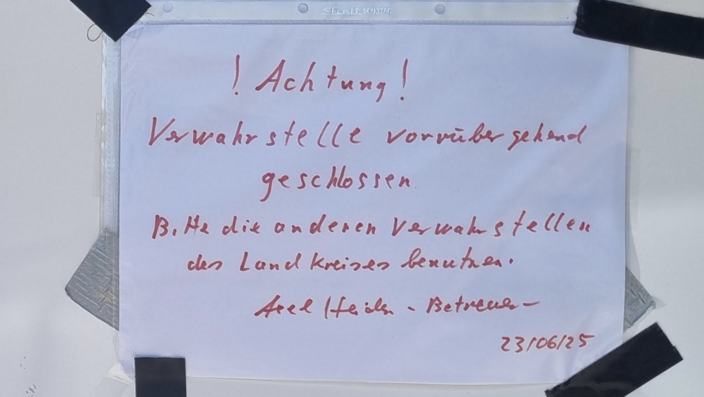 ! Achtung !
Verwahrstelle vorrübergehend
geschlossen.
Bitte die anderen Verwahrstellen
des Landkreises benutzen.
- Betreuer -
23/06/25